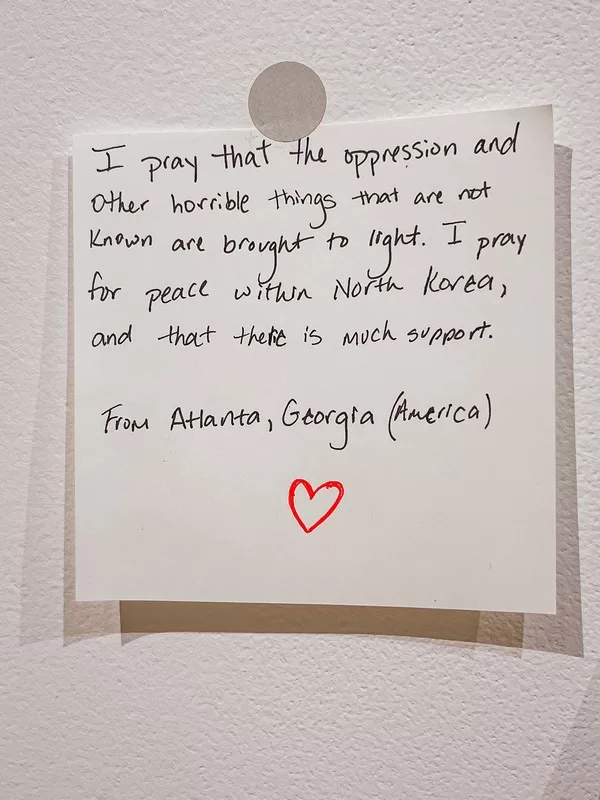 I pray that the oppression and
other horrible things that are not
known are brought to light. I pray
for peace within North Korea,
and that there is much support.
From Atlanta, Georgia (America)